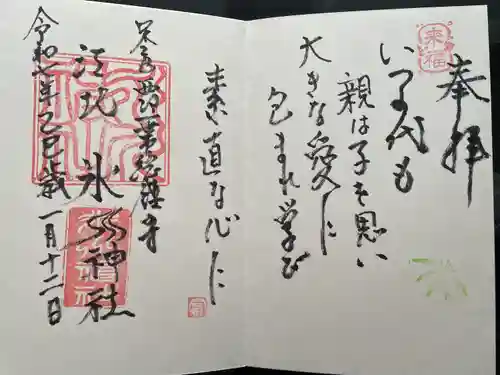 来福
奉拝
いつの代も
親は子を思い
大きな愛に
包まれ学び
素直な心に
江北氷川神社
令和七年乙巳歳一月十二日